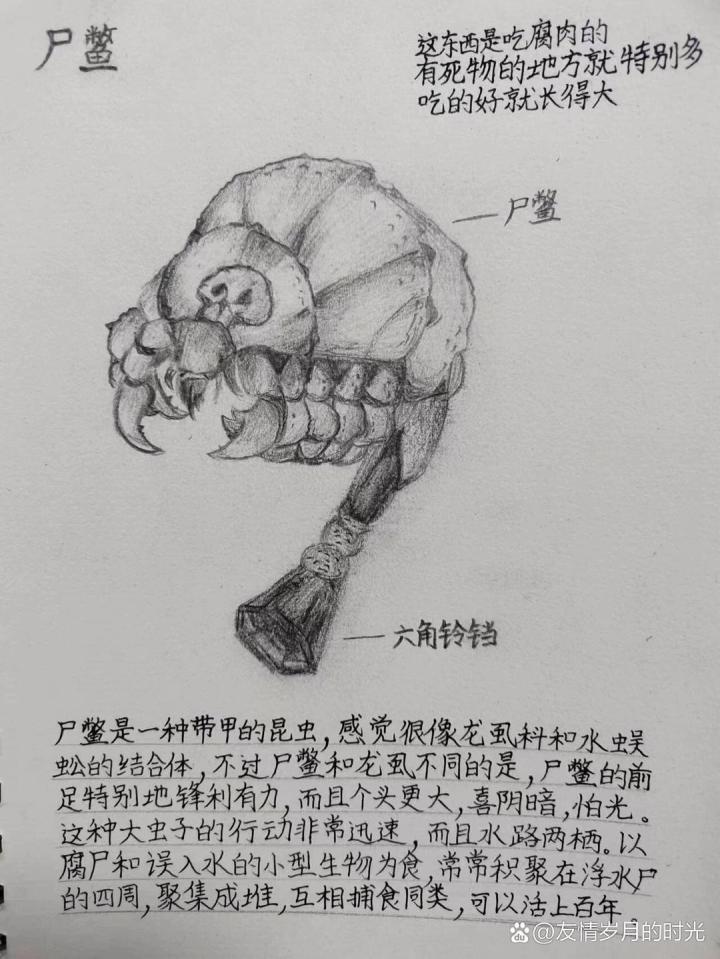 尸鳖
这东西是吃腐肉的
有死物的地方就特别多
吃的好就长得大
尸鳖
六角铃铛
尸鳖是一种带甲的昆虫，感觉很像龙虱科和水蜈
蚣的结合体，不过尸鳖和龙虱不同的是，尸鳖的前
足特别地锋利有力，而且个头更大，喜阴暗，怕光。
这种大虫子的行动非常迅速，而且水路两栖。以
腐尸和误入水的小型生物为食，常常积聚在浮水尸
的四周，聚集成堆，互相捕食同类，可以活上百年。
@友情岁月的时光